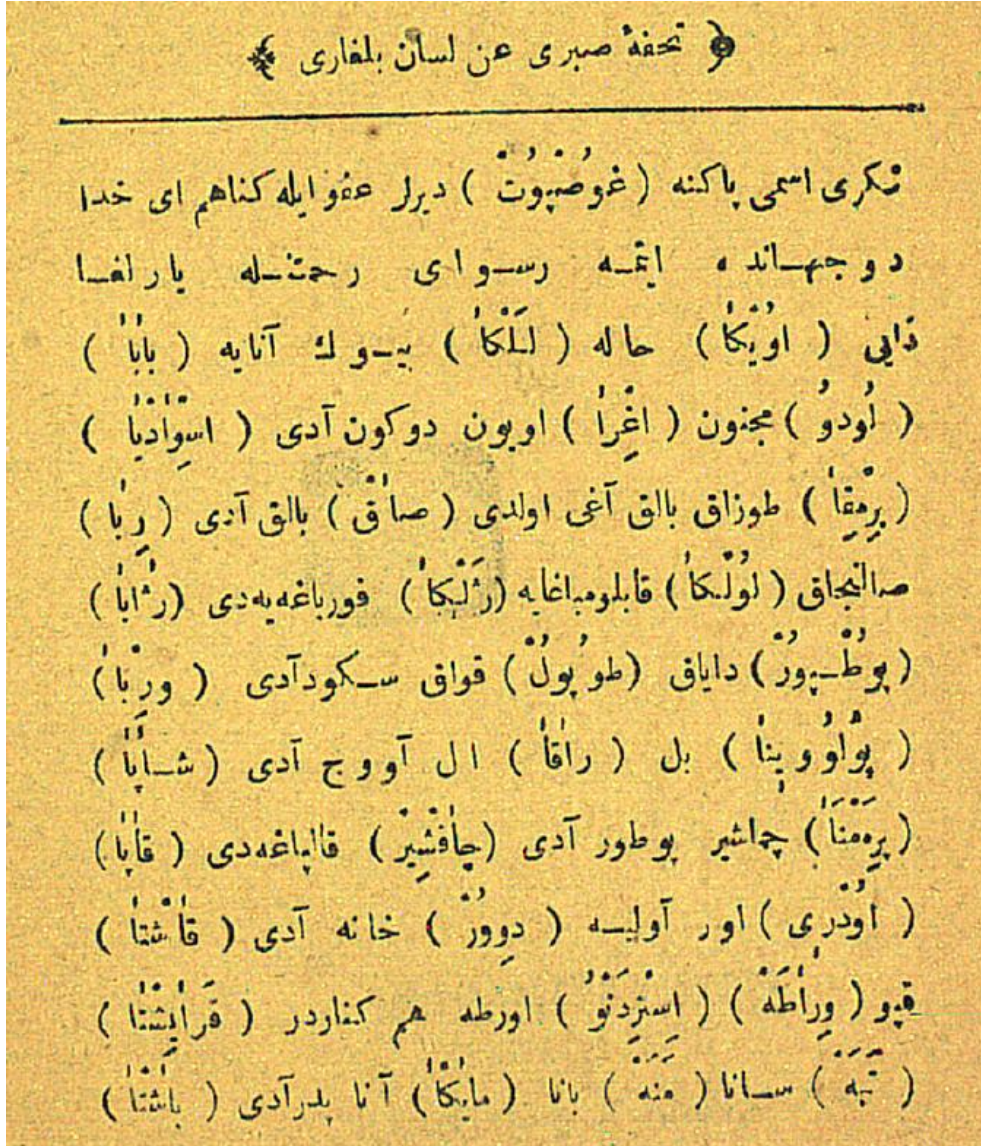 تحفهٔ صبری عن لسان بلغاری
تکری اسمی پاکنه ( غُوصْپُوتْ ) دیرلر عفو ایله کناهم ای خدا
دو جهانده ایتمه رسوای رحمتله یارلغا
دایی ( اوُیْکاٰ ) خاله ( لَلْکاٰ ) بیوك آنایه ( باٰباٰ )
( لُودوُ ) مجنون ( اغْراٰ ) اویون دوکون آدی ( اسْواٰدْباٰ )
( بِرْمْقاٰ ) طوزاق بالق آغی اولدی ( صاٰقْ ) بالق آدی ( رِباٰ )
صالنجاق ( لوُلْکاٰ ) قابلومباغایه ( ژَلْبکاٰ ) قورباغه یه دی ( ژاٰباٰ )
( پوُطْپوُرْ ) دایاق ( طوُپوُلْ ) قواق سکود آدی ( ورْباٰ )
( پوُلوُویناٰ ) بل ( راٰقاٰ ) ال آووج آدی ( شاٰپاٰ )
( پرَمَْناٰ ) چماشیر پوطور آدی ( چاٰقْشیرْ ) قالپاغه دی ( قاٰپاٰ )
( اوُدْریٰ ) اور آولیسه ( دِووُرْ ) خانه آدی ( قاٰشْتاٰ )
قپو ( وِراٰطَهْ ) ( اِسْرَدْنوُ ) اورطه هم کناردر ( قَراٰیشْتاٰ )
( تَبَهْ ) سانا ( مَنَهْ ) بانا ( ماٰیْکاٰ ) آنا پدر آدی ( باٰشْتاٰ )